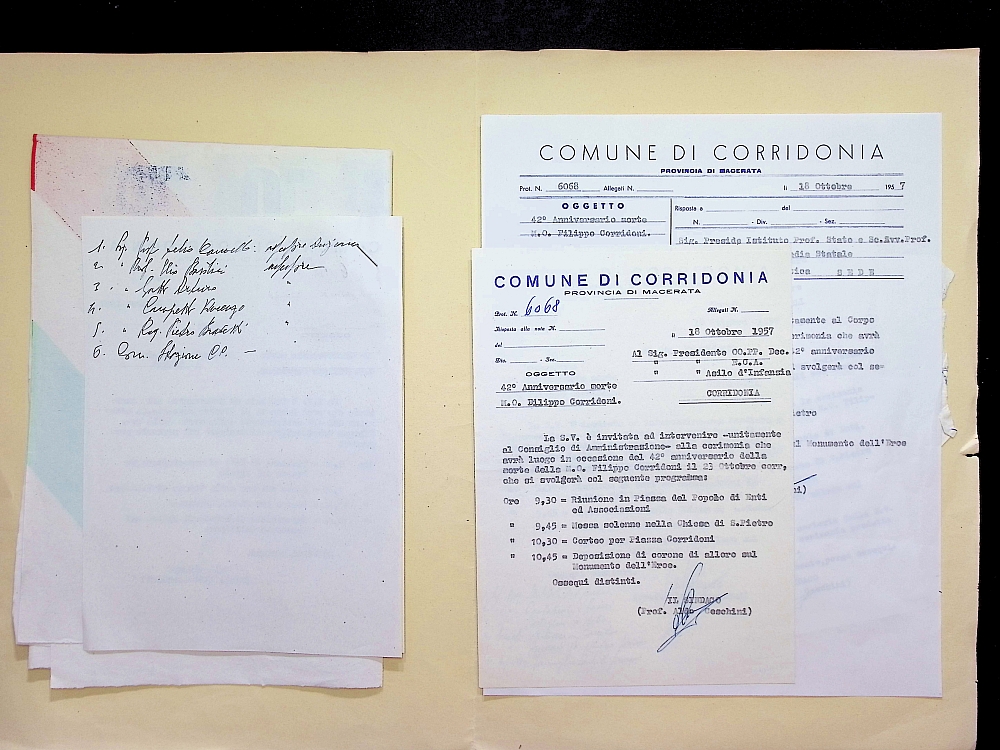 1.
2. "
3. "
4. "
5. " Rag. Pietro
6. Com. Stazione CC. —
COMUNE DI CORRIDONIA
PROVINCIA DI MACERATA
Prot. N. 6068 Allegati N.
li 18 Ottobre 195 7
OGGETTO
42° Anniversario morte
M.O. Filippo Corridoni.
Risposta a del
N. - Div. - Sez.
Sig. Preside Istituto Prof. Stato e Sc.Avv.Prof.
dia Statale
ica SEDE
tamente al Corpo
erimonia che avrà
42° anniversario
svolgerà col se=
ietro
l Monumento dell'Eroe
ni)
COMUNE DI CORRIDONIA
PROVINCIA DI MACERATA
Prot. N. 6068
Allegati N.
Risposta alla nota N.
del
Div. - Sez.
li 18 Ottobre 1957
Al Sig. Presidente OO.PP. Dec.
" " E.C.A.
" " Asilo d'Infanzia
CORRIDONIA
OGGETTO
42° Anniversario morte
M.O. Filippo Corridoni.
La S.V. è invitata ad intervenire -unitamente
al Consiglio di Amministrazione- alla cerimonia che
avrà luogo in occasione del 42° anniversario della
morte della M.O. Filippo Corridoni il 23 Ottobre corr,
che si svolgerà col seguente programma:
Ore 9,30 = Riunione in Piazza del Popolo di Enti
ed Associazioni
" 9,45 = Messa solenne nella Chiesa di S.Pietro
" 10,30 = Corteo per Piazza Corridoni
" 10,45 = Deposizione di corone di alloro sul
Monumento dell'Eroe.
Ossequi distinti.
IL SINDACO
(Prof. Aldo Ceschini)